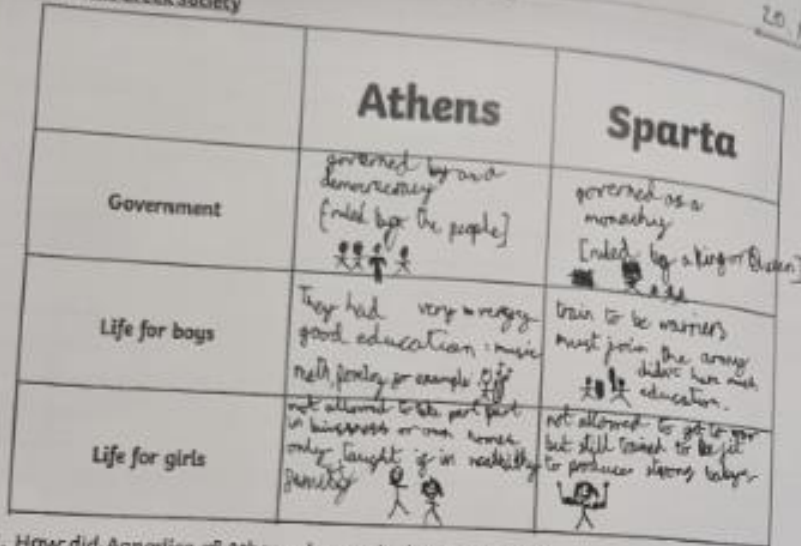 Greek Society
20.
Athens
Sparta
Government
governed by as a
democracy
[ruled by the people]
governed as a
monachy
[ruled by a King or Queen]
Life for boys
They had very
good education: music
math, poetry for example
train to be warriers
must join the army
didn't have much
education.
Life for girls
not allowed to take part part
in buissness or own homes
only taught if in wealthy
family
not allowed to go to war
but still trained to be fit
to produce strong babys
How did